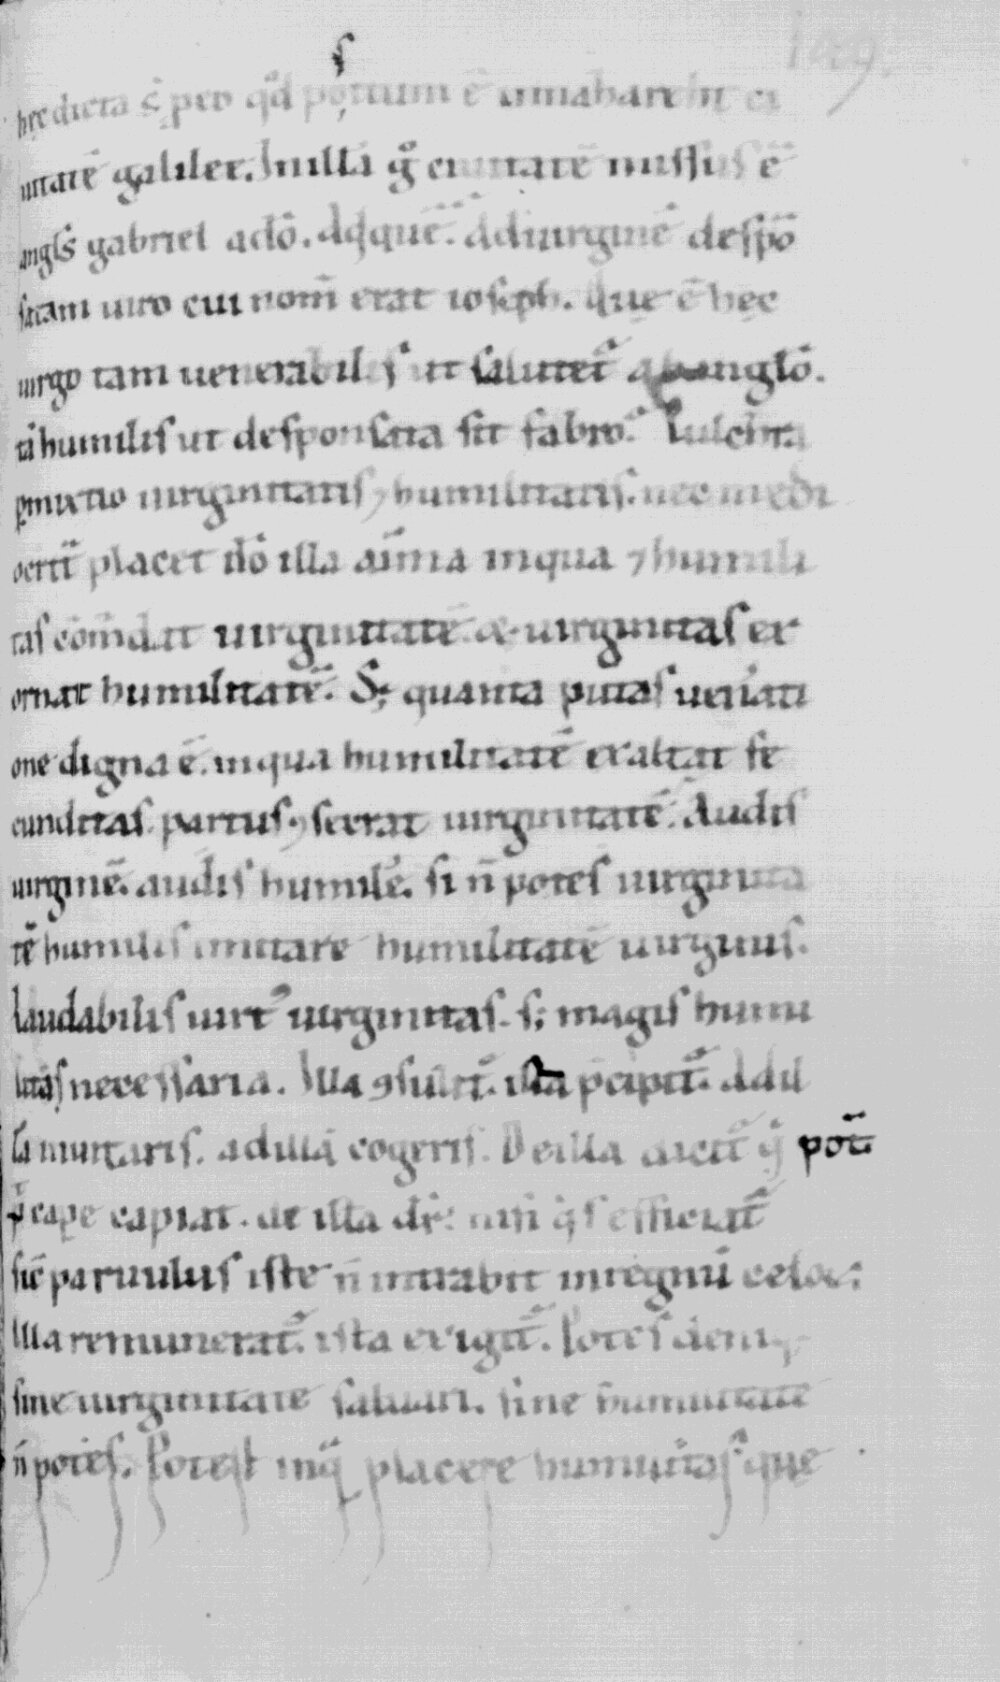 hęc dicta s̄ pro qd positum ē in nazareth ci
uitatē galileę. In illā g̊ ciuitatē missus ē
angl̄s gabriel a dō. Ad quē. Ad uirginē despō
satam uiro cui nom̄ erat ioseph. Que ē hęc
uirgo tam uenerabilis ut salutet᷑ ab anglō.
tā humilis ut desponsata sit fabro. Pulchra
ꝑmixtio uirginitatis ⁊ humilitatis. nec medi
ocrit᷑ placet dō illa aīma in qua ⁊ humili
tas cōm̄dat uirginitatē. & uirginitas ex
ornat humilitatē. Sꝫ quanta putas uen̄ati
one digna ē. in qua humilitatē exaltat fe
cunditas. partus ⁊ secrat uirginitatē. Audis
uirginē. audis humilē. si n̄ potes uirginita
tē humilis imitare humilitatē uirginis.
Laudabilis uirt᷒ uirginitas. sꝫ magis humi
litas necessaria. Illa ꝯsulit᷑. ista p̄cipit᷑. Ad il
lā inuitaris. ad illā cogeris. De illa dicit᷑ q̄ pot᷑
cape capiat. de ista dr̄. nisi q̄s efficiat᷑
sic̄ paruulus iste n̄ intrabit in regnū celoꝝ.
Illa remunerat᷑. ista exigit᷑. Potes deniqꝫ
sine uirginitate saluari. sine humilitate
n̄ potes. Potest inq̄ placere humilitas que